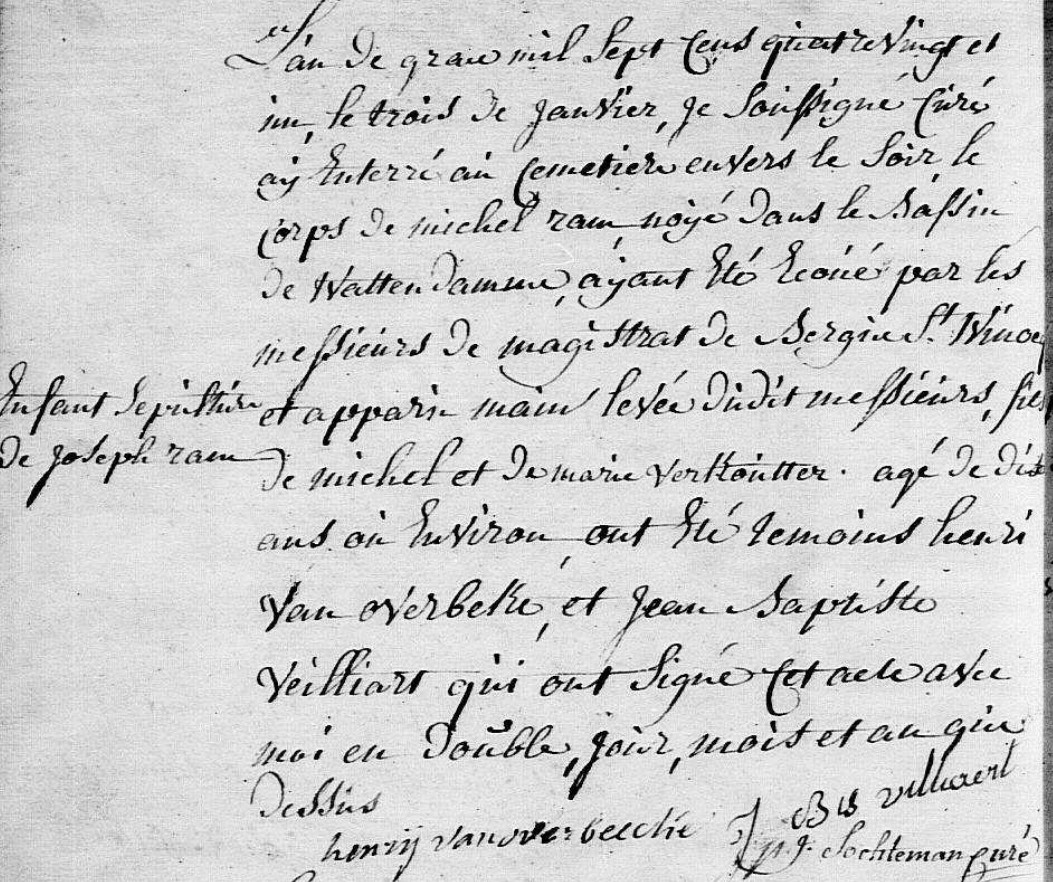 L'an de grace mil sept cens quatre vingt et
un, le trois de janvier, je soussigné curé
aÿ enterré au cemetiere envers le soir le
corps de michel ram noÿé dans le Bassin
de Wattendamme, aÿant été par les
messieurs de magistrat de Bergue St. Winoc
et main levée dudit messieurs, fils
Enfant sepulture
de joseph ram
de michel et de marie verkoutter. agé de dix
ans ou environ ont été temoins henri
Van overbeke, et jean Baptiste
Veilliart qui ont signé cet acte avec
moi en double, jour, mois et an que
dessus
henrij van overbeecke J Bte villiaert
p. j. Sochteman curé